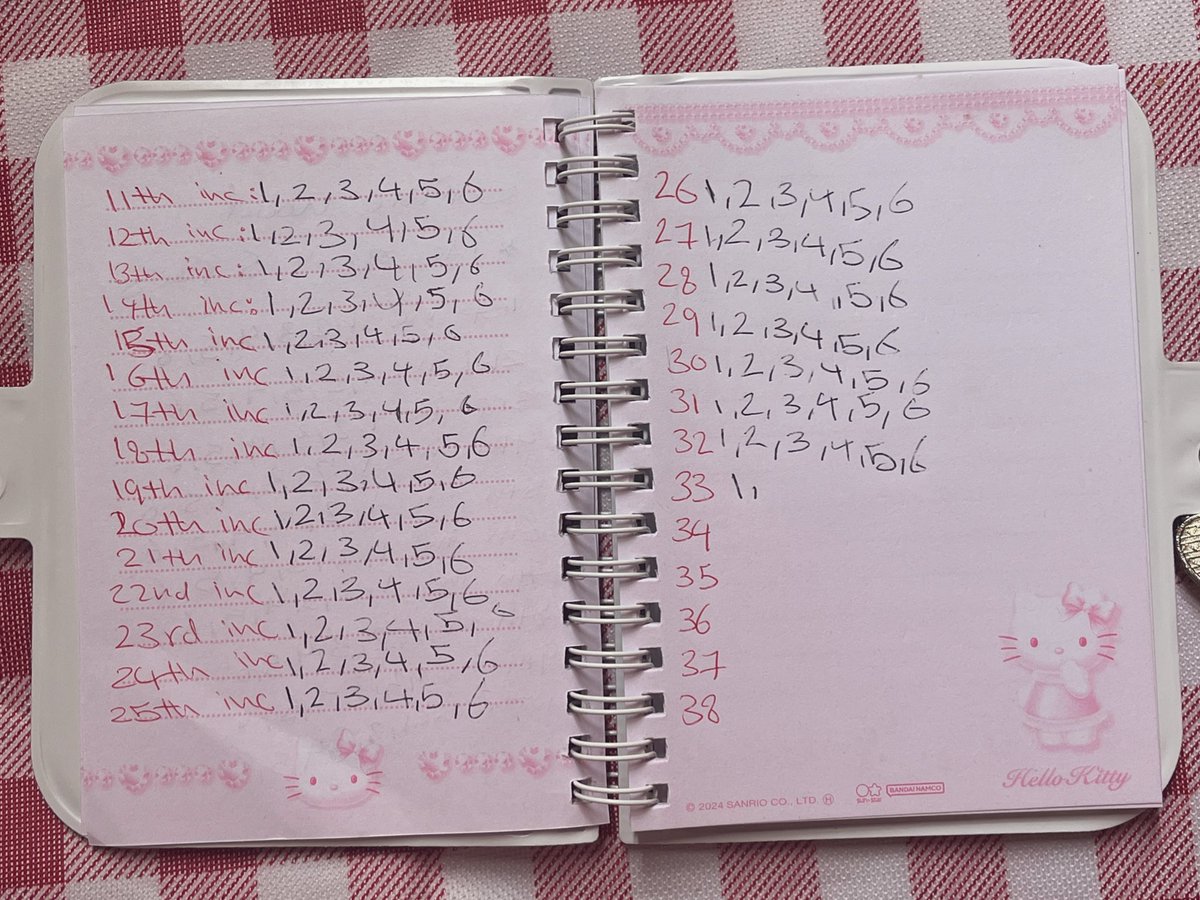 11th inc:1, 2, 3, 4, 5, 6
12th inc:1, 2, 3, 4, 5, 6
13th inc: 1, 2, 3, 4, 5, 6
14th inc: 1, 2, 3, 4, 5, 6
15th inc 1, 2, 3, 4, 5, 6
16th inc 1, 2, 3, 4, 5, 6
17th inc 1, 2, 3, 4, 5, 6
18th inc 1, 2, 3, 4, 5, 6
19th inc 1, 2, 3, 4, 5, 6
20th inc 1, 2, 3, 4, 5, 6
21th inc 1, 2, 3, 4, 5, 6
22nd inc 1, 2, 3, 4, 5, 6
23rd inc 1, 2, 3, 4, 5, 6
24th inc 1, 2, 3, 4, 5, 6
25th inc 1, 2, 3, 4, 5, 6
26 1, 2, 3, 4, 5, 6
27 1, 2, 3, 4, 5, 6
28 1, 2, 3, 4, 5, 6
29 1, 2, 3, 4, 5, 6
30 1, 2, 3, 4, 5, 6
31 1, 2, 3, 4, 5, 6
32 1, 2, 3, 4, 5, 6
33 1,
34
35
36
37
38
Hello Kitty
© 2024 SANRIO CO., LTD. Ⓗ SUN-STAR BANDAI NAMCO